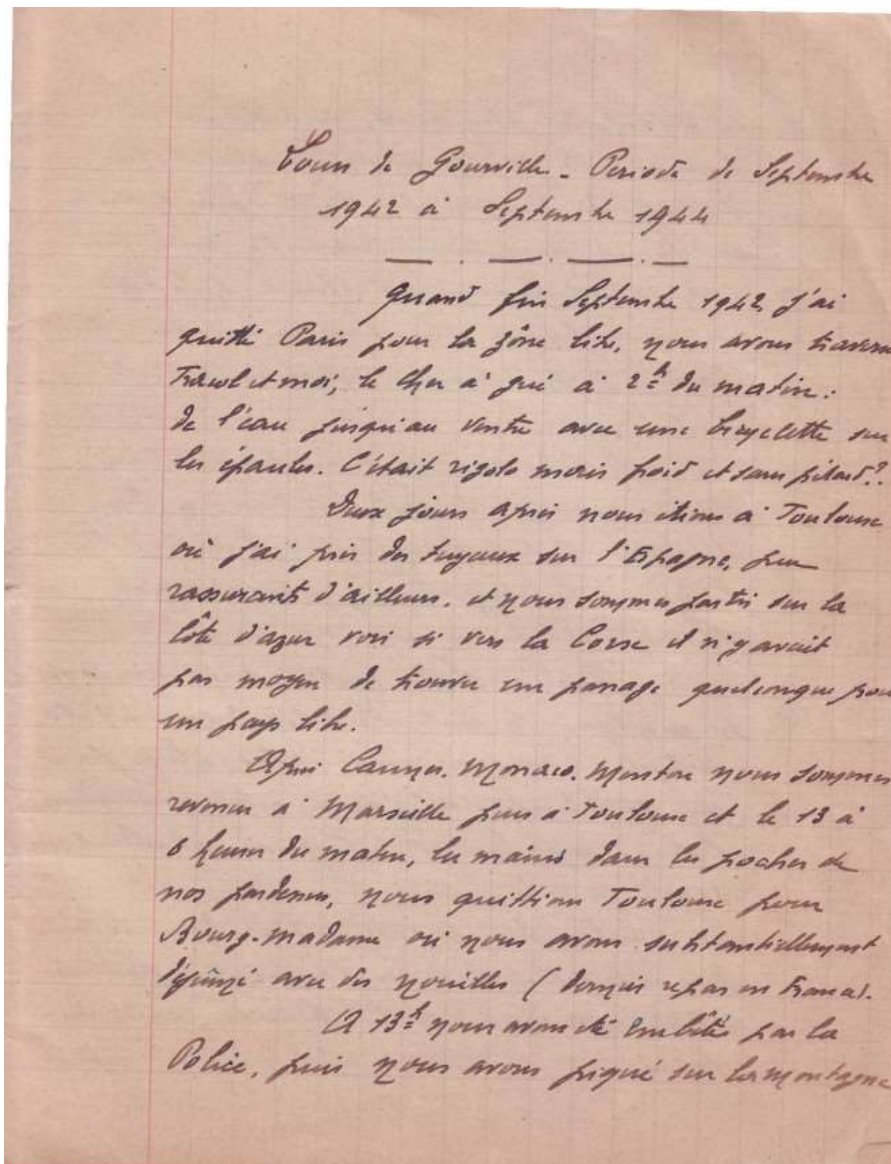 Cours de Gourville - Periode de Septembre
1942 à Septembre 1944
Quand fin Septembre 1942, j'ai
quitté Paris pour la zône libre, nous avons
et moi, le Cher à gué à 2h du matin :
de l'eau jusqu'au ventre avec une bicyclette sur
les épaules. C'était rigolo mais froid et sans pétard ??
Deux jours après nous étions à Toulouse
où j'ai pris des tuyaux sur l'Espagne, peu
rassurants d'ailleurs, et nous sommes partis sur la
Côte d'azur voir si vers la Corse il n'y avait
pas moyen de trouver un passage quelconque pour
un pays libre.
Après Cannes. Monaco. Menton nous sommes
revenus à Marseille puis à Toulouse et le 13 à
6 heures du matin, les mains dans les poches de
nos pardessus, nous quittions Toulouse pour
Bourg-madame où nous avons substantiellement
déjeûné avec des nouilles (dernier repas en France).
A 13h nous avons été embêtés par la
Police, puis nous avons piqué sur la montagne